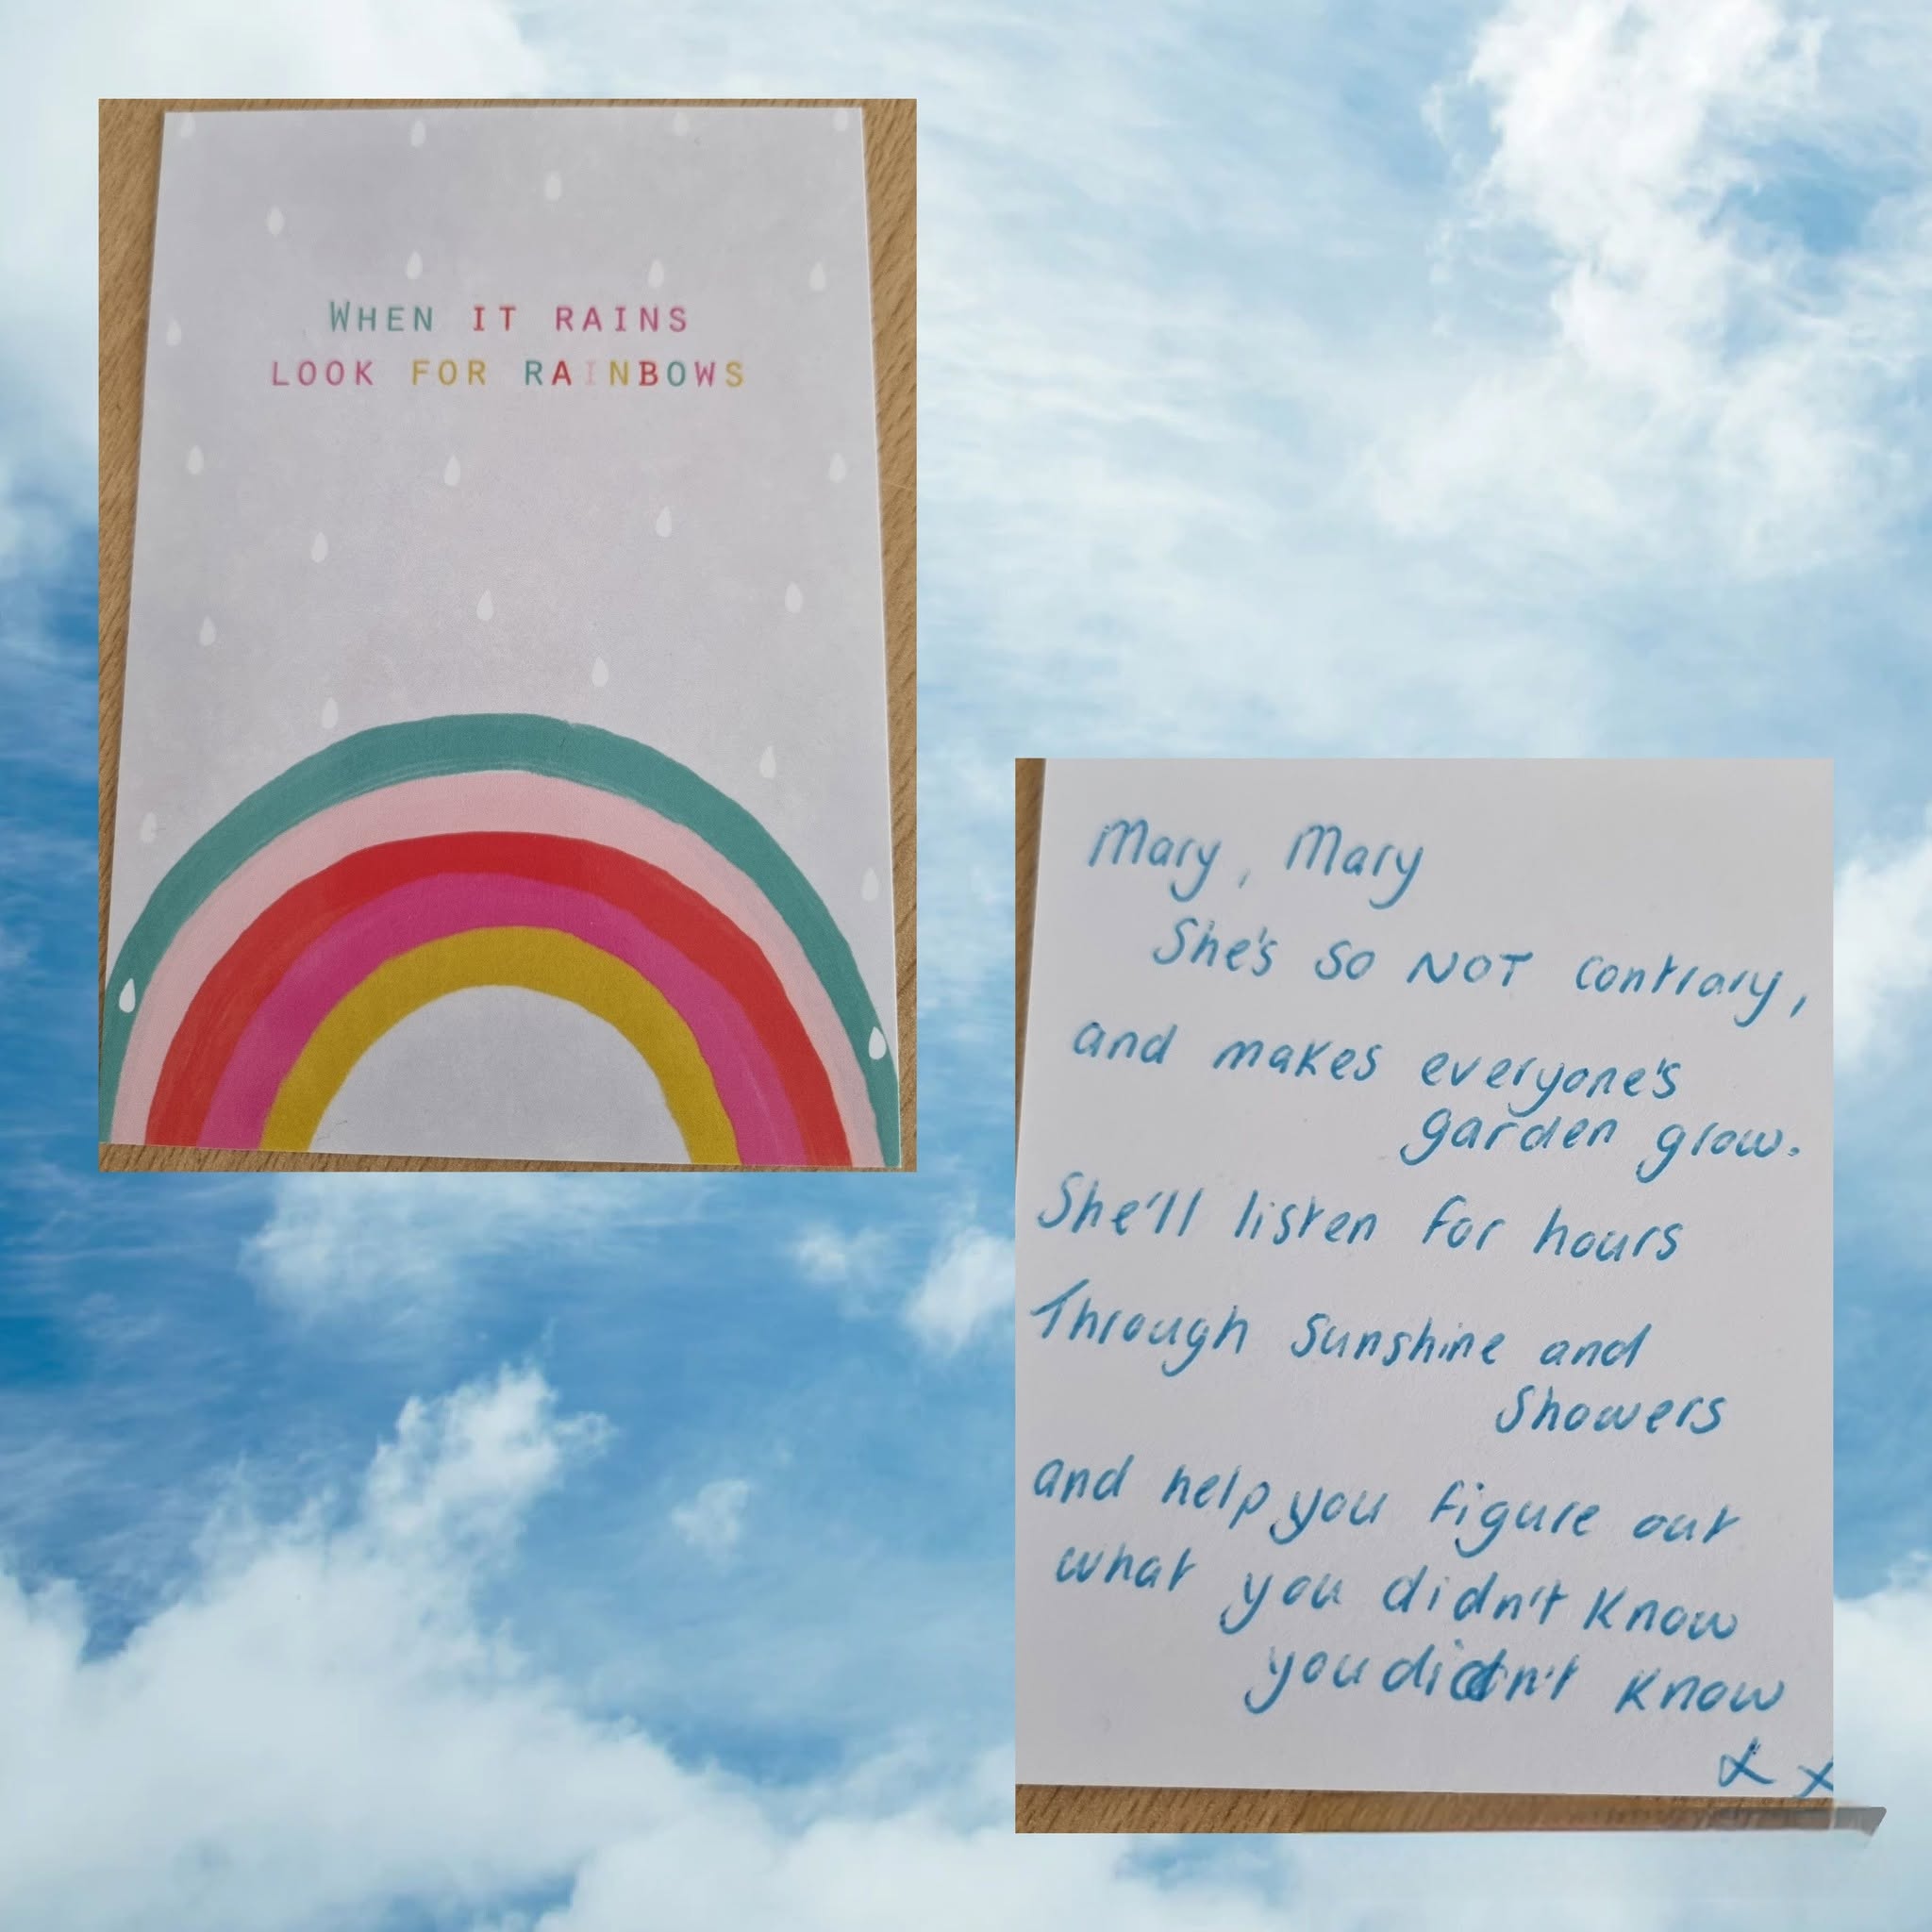 WHEN IT RAINS
LOOK FOR RAINBOWS
Mary, Mary
She's so NOT contrary,
and makes everyone's
garden glow.
She'll listen for hours
Through Sunshine and
Showers
and help you figure out
what you didn't know
you didn't know
x x